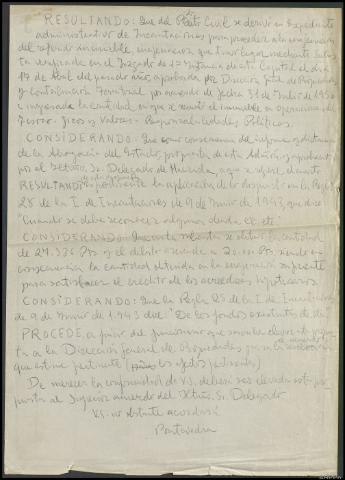 RESULTANDO: Que del Pleito Civil se derivó un Expediente
administrativo de Incautaciones para proceder a la enajenación
del referido inmueble, enajenación que tuvo lugar mediante subas-
ta verificada en el Juzgado de 1ª Instancia de esta Capital el día
17 de Abril del pasado año, aprobada por Dirección Gral. de Propiedades
y Contribución Territorial por acuerdo de fecha 31 de Julio de 1950
e ingresada la cantidad en que se remató el inmueble en operaciones del
Tesoro - Giros y Valores - Responsabilidades Políticas.
CONSIDERANDO: Que como consecuencia del informe o dictamen
de la Abogacía del Estado, por parte de esta Admón. y aprobante
por el Iltmo. Sr. Delegado de Hacienda, aquí se refiere, durante
RESULTANDO pertinente la aplicación de lo dispuesto en la Regla
28 de la I. de Incautaciones de 9 de Enero de 1943, que dice:
"Cuando se deba reconocer alguna deuda etc. etc."
CONSIDERANDO: Que en la subasta se obtuvo la cantidad
de 27.336 Pts y el débito asciende a 20.000 Pts, siendo en
consecuencia la cantidad obtenida en la enajenación suficiente
para satisfacer el crédito de los acreedores hipotecarios.
CONSIDERANDO: Que la Regla 25 de la I. de Incautaciones
de 9 de Enero de 1943 dice: "De los fondos existentes de
PROCEDE, a juicio del funcionario que suscribe elevar propues-
ta a la Dirección General de Propiedades para la
que estime pertinente (los efectos pertinentes)
De merecer la conformidad de V.S. deberá ser elevada esta pro-
puesta al superior acuerdo del Iltmo. Sr. Delegado
V.S. no obstante acordará
Pontevedra